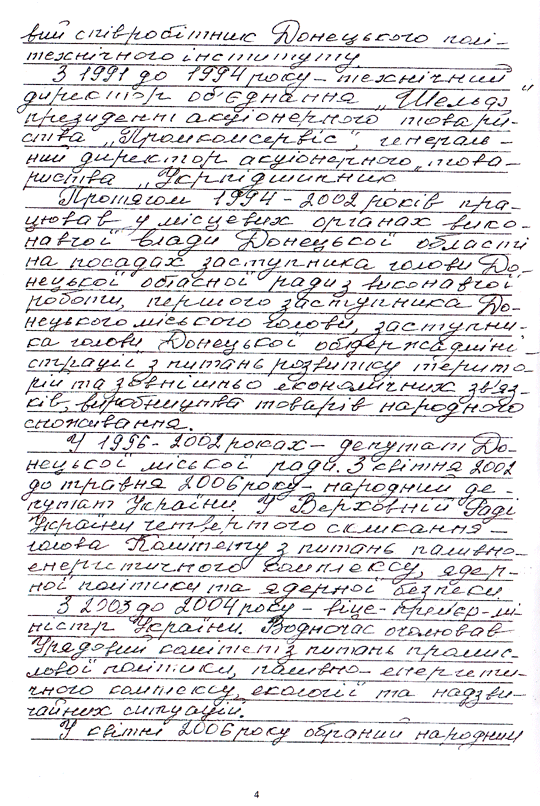 вий співробітник Донецького полі-
технічного інституту.
З 1991 до 1994 року - технічний
директор об'єднання „Шельф"
президент акціонерного товари-
ства „Промкомсервіс", генераль-
ний директор акціонерного това-
риства „Укрпідшипник
Протягом 1994 - 2002 років пра-
цював у місцевих органах вико-
навчої влади Донецької області
на посадах заступника голови До-
нецької обласної ради з виконавчої
роботи, першого заступника До-
нецького міського голови, заступни-
ка голови Донецької облдержадміні-
страції з питань розвитку терито-
рій та зовнішньо економічних зв'яз-
ків, виробництва товарів народного
споживання.
У 1996 - 2002 роках - депутат До-
нецької міської ради. З квітня 2002
до травня 2006 року - народний де-
путат України. У Верховній Раді
України четвертого скликання -
голова Комітету з питань паливно-
енергетичного комплексу, ядер-
ної політики та ядерної безпеки
З 2003 до 2004 року - віце-прем'єр-мі-
ністр України. Водночас очолював
Урядовий комітет із питань промис-
лової політики, паливно-енергети-
чного комплексу, екології та надзви-
чайних ситуацій.
У квітні 2006 року обраний народним
4